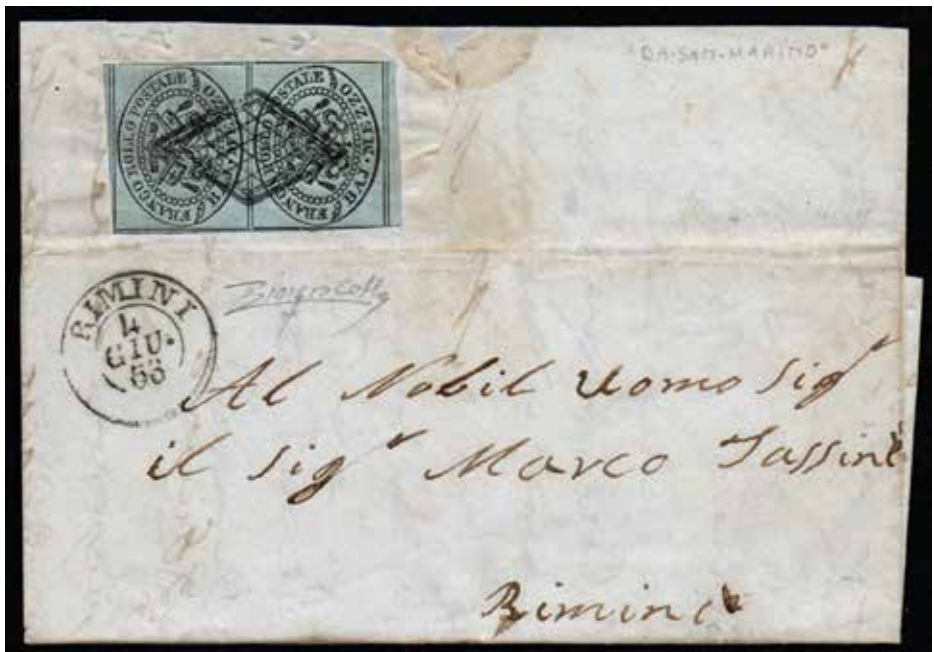 "DA·SAN·MARINO"
FRANCO BOLLO POSTALE
MEZZO
BAJ.
FRANCO BOLLO POSTALE
MEZZO BAJ.
RIMINI
4
GIU.
56
Al Nobil Uomo Sig.r
il Sig.r Marco Tassini
Rimini